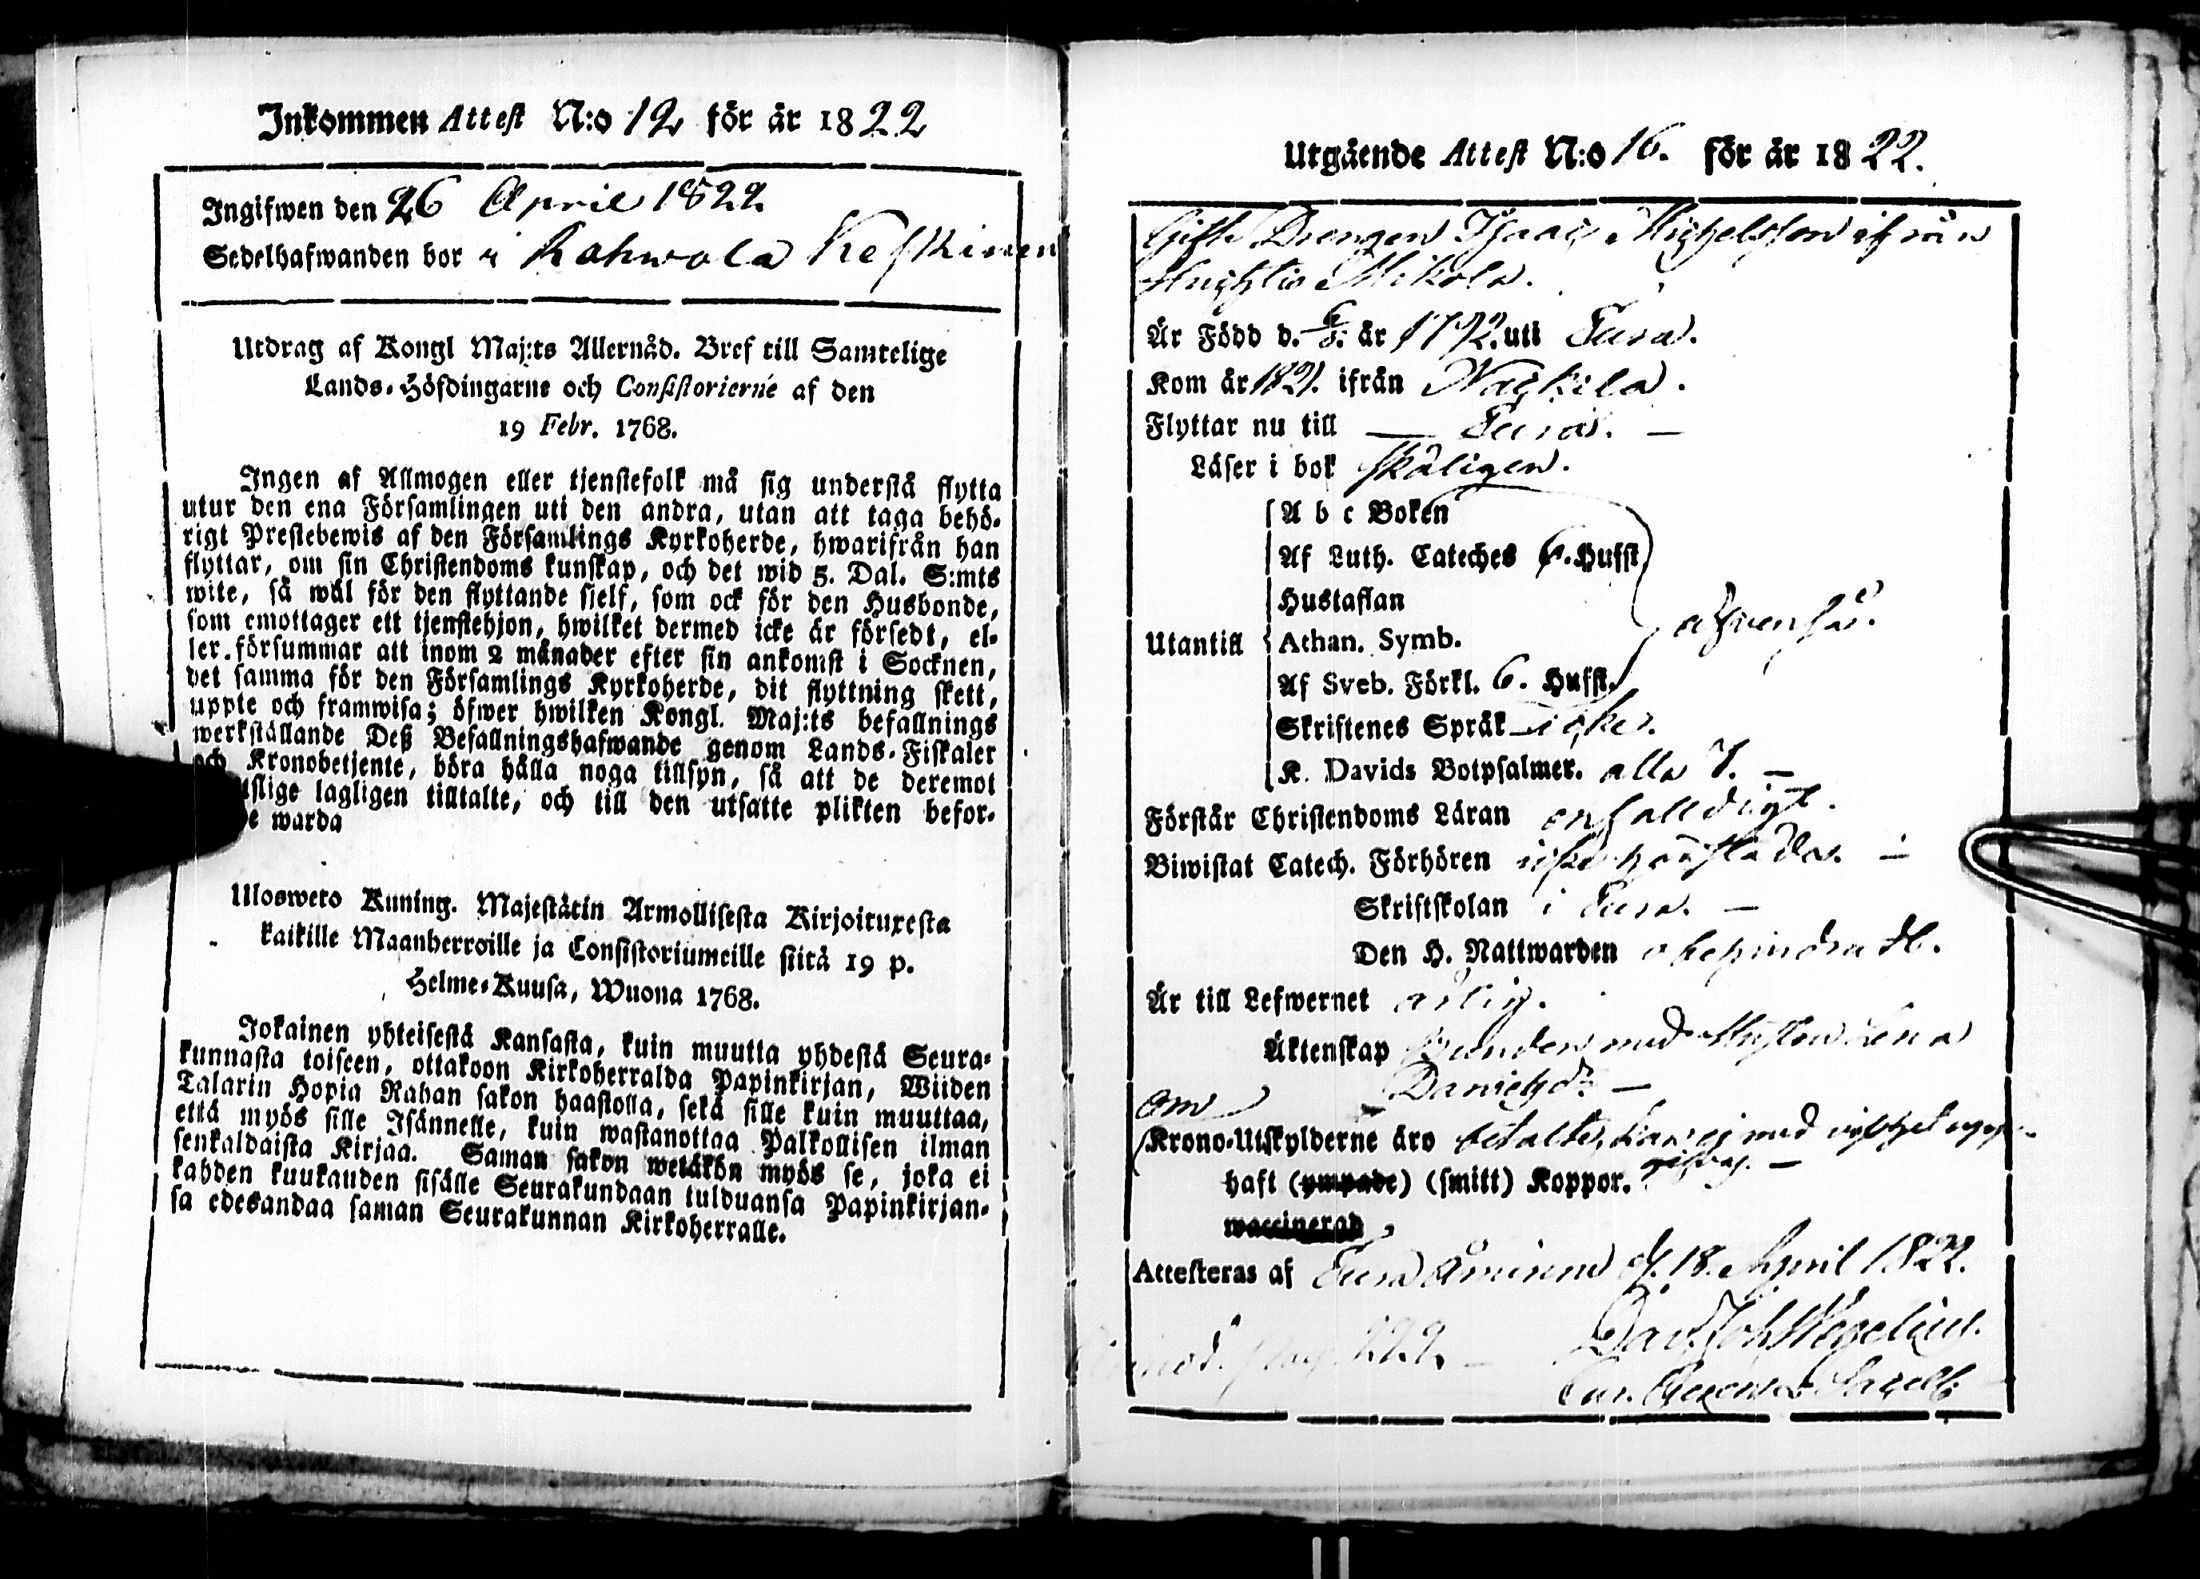 Inkommen Attest N:o 12 för år 1822
Ingifwen den 26 April 1822
Sedelhafwanden bor i Kahwola Keskinen
Utdrag af Kongl Maj:ts Allernåd. Bref till Samtelige
Lands-Höfdingarne och Consistorierne af den
19 Febr. 1768.
Ingen af Allmogen eller tjenstefolk må sig understå flytta
utur den ena Församlingen uti den andra, utan att taga behö-
rigt Prestebewis af den Församlings Kyrkoherde, hwarifrån han
flyttar, om sin Christendoms kunskap, och det wid 5. Dal. S:mts
wite, så wäl för den flyttande sielf, som ock för den Husbonde,
som emottager ett tjenstehjon, hwilket dermed icke är försedt, el-
ler försummar att inom 2 månader efter sin ankomst i Socknen,
det samma för den Församlings Kyrkoherde, dit flyttning skett,
uppte och framwisa; öfwer hwilken Kongl. Maj:ts befallnings
werkställande Deß Befallningshafwande genom Lands-Fiskaler
och Kronobetjente, böra hålla noga tillsyn, så att de deremot
slige lagligen tilltalte, och till den utsatte plikten befor-
e warda
Ulosweto Kuning. Majestätin Armollisesta Kirjoituxesta
kaikille Maanherroille ja Consistoriumeille siitä 19 p.
Helme-Kuusa, Wuona 1768.
Jokainen yhteisestä Kansasta, kuin muutta yhdestä Seura-
kunnasta toiseen, ottakoon Kirkoherralda Papinkirjan, Wiiden
Talarin Hopia Rahan sakon haastolla, sekä sille kuin muuttaa,
että myös sille Isännelle, kuin wastanottaa Palkollisen ilman
senkaldaista Kirjaa. Saman sakon wetäkön myös se, joka ei
kahden kuukauden sisälle Seurakundaan tulduansa Papinkirjan-
sa edesandaa saman Seurakunnan Kirkoherralle.
Utgående Attest N:o 16. för år 1822.
Gifte Drengen Isaac Michelsson ifrån
Mikola.
Är Född d. år 1792. uti Eura.
Kom år 1821. ifrån Nackila.
Flyttar nu till — Eura. —
Läser i bok skäligen.
A b c Boken
Af Luth. Cateches 6. Hufst.
Hustaflan
Utantill Athan. Symb. äfvenså.
Af Sveb. Förkl. 6. Hufst.
Skriftenes Språk icke.
K. Davids Botpsalmer. alla 7. —
Förstår Christendoms Läran enfalldigt.
Biwistat Catech. Förhören icke härstädes. —
Skriftskolan i Eura. —
Den H. Nattwarden obehindradt.
Är till Lefwernet ärlig.
Äktenskap bunden med Hustru Lena
Danielsd:r —
Om
Krono-Utskylderne äro betalte, kan ej med visshet upp-
gifvas. —
haft (ympade) (smitt) Koppor.
waccinerad
Attesteras af Eura Åminne d. 18. April 1822.
Dav. Joh. Wegelius.
pag. 222. —